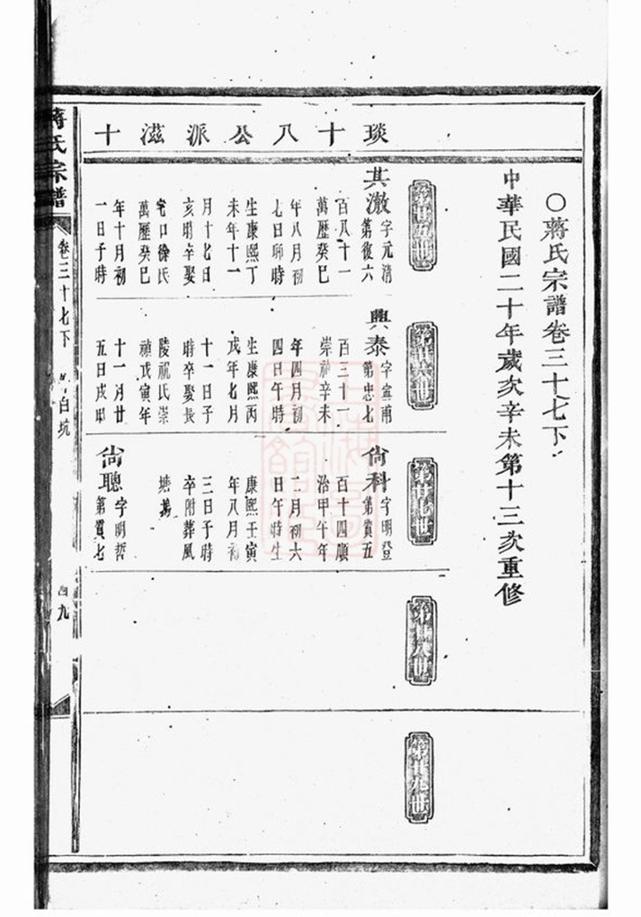 琰十八公派滋十
○蔣氏宗譜卷三十七下
中華民國二十年歲次辛未第十三次重修
其澈字元清
第復六
百八十一
萬歷癸巳
年八月初
七日卯時
生康熙丁
未年十一
月十七日
亥時卒娶
宅口徐氏
萬歷癸巳
年十月初
一日子時
興泰字寧甫
第忠七
百三十一
崇禎辛未
年四月初
四日午時
生康熙丙
戌年七月
十一日子
時卒娶長
陵祝氏崇
禎戊寅年
十一月廿
五日戌時
尙科字明登
第貲五
百十四順
治甲午年
二月初六
日午時生
康熙壬寅
年八月初
三日子時
卒附葬風
塘塢
尙聰字明哲
第貲七
蔣氏宗譜
卷三十七下
白坑
九